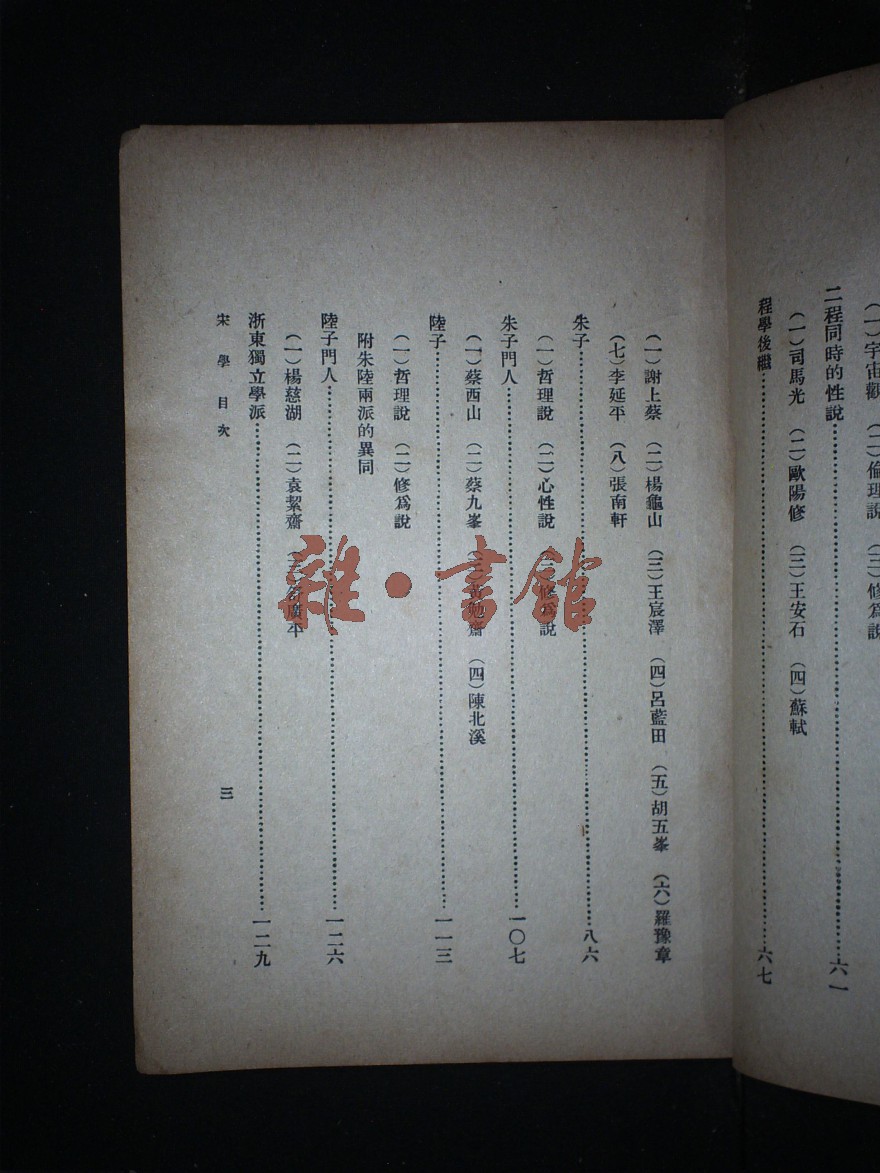 （一）宇宙觀　（二）倫理說　（三）修爲說
二程同時的性說…………六一
（一）司馬光　（二）歐陽修　（三）王安石　（四）蘇軾
程學後繼…………六七
（一）謝上蔡　（二）楊龜山　（三）王宸澤　（四）呂藍田　（五）胡五峯　（六）羅豫章
（七）李延平　（八）張南軒
朱子…………八六
（一）哲理說　（二）心性說　（三）修爲說
朱子門人…………一〇七
（一）蔡西山　（二）蔡九峯　（三）黃勉齋　（四）陳北溪
陸子…………一一三
（一）哲理說　（二）修爲說
附朱陸兩派的異同
陸子門人…………一二六
（一）楊慈湖　（二）袁絜齋　（三）舒廣平
浙東獨立學派…………一二九
宋學目次
三
雜·書館